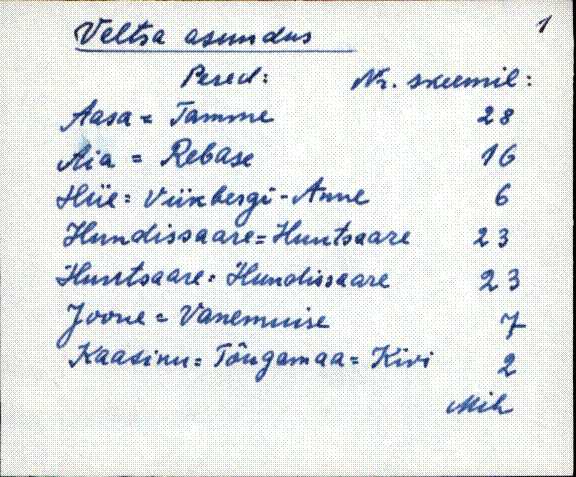 1
Veltsa asundus
Pered: Nr. skeemil:
Aasa = Tamme 28
Aia = Rebase 16
Hüe = Viinbergi-Anne 6
Hundissaare = Huntsaare 23
Huntsaare = Hundissaare 23
Joone = Vanemuise 7
Kaasinu = Tõugamaa = Kivi 2